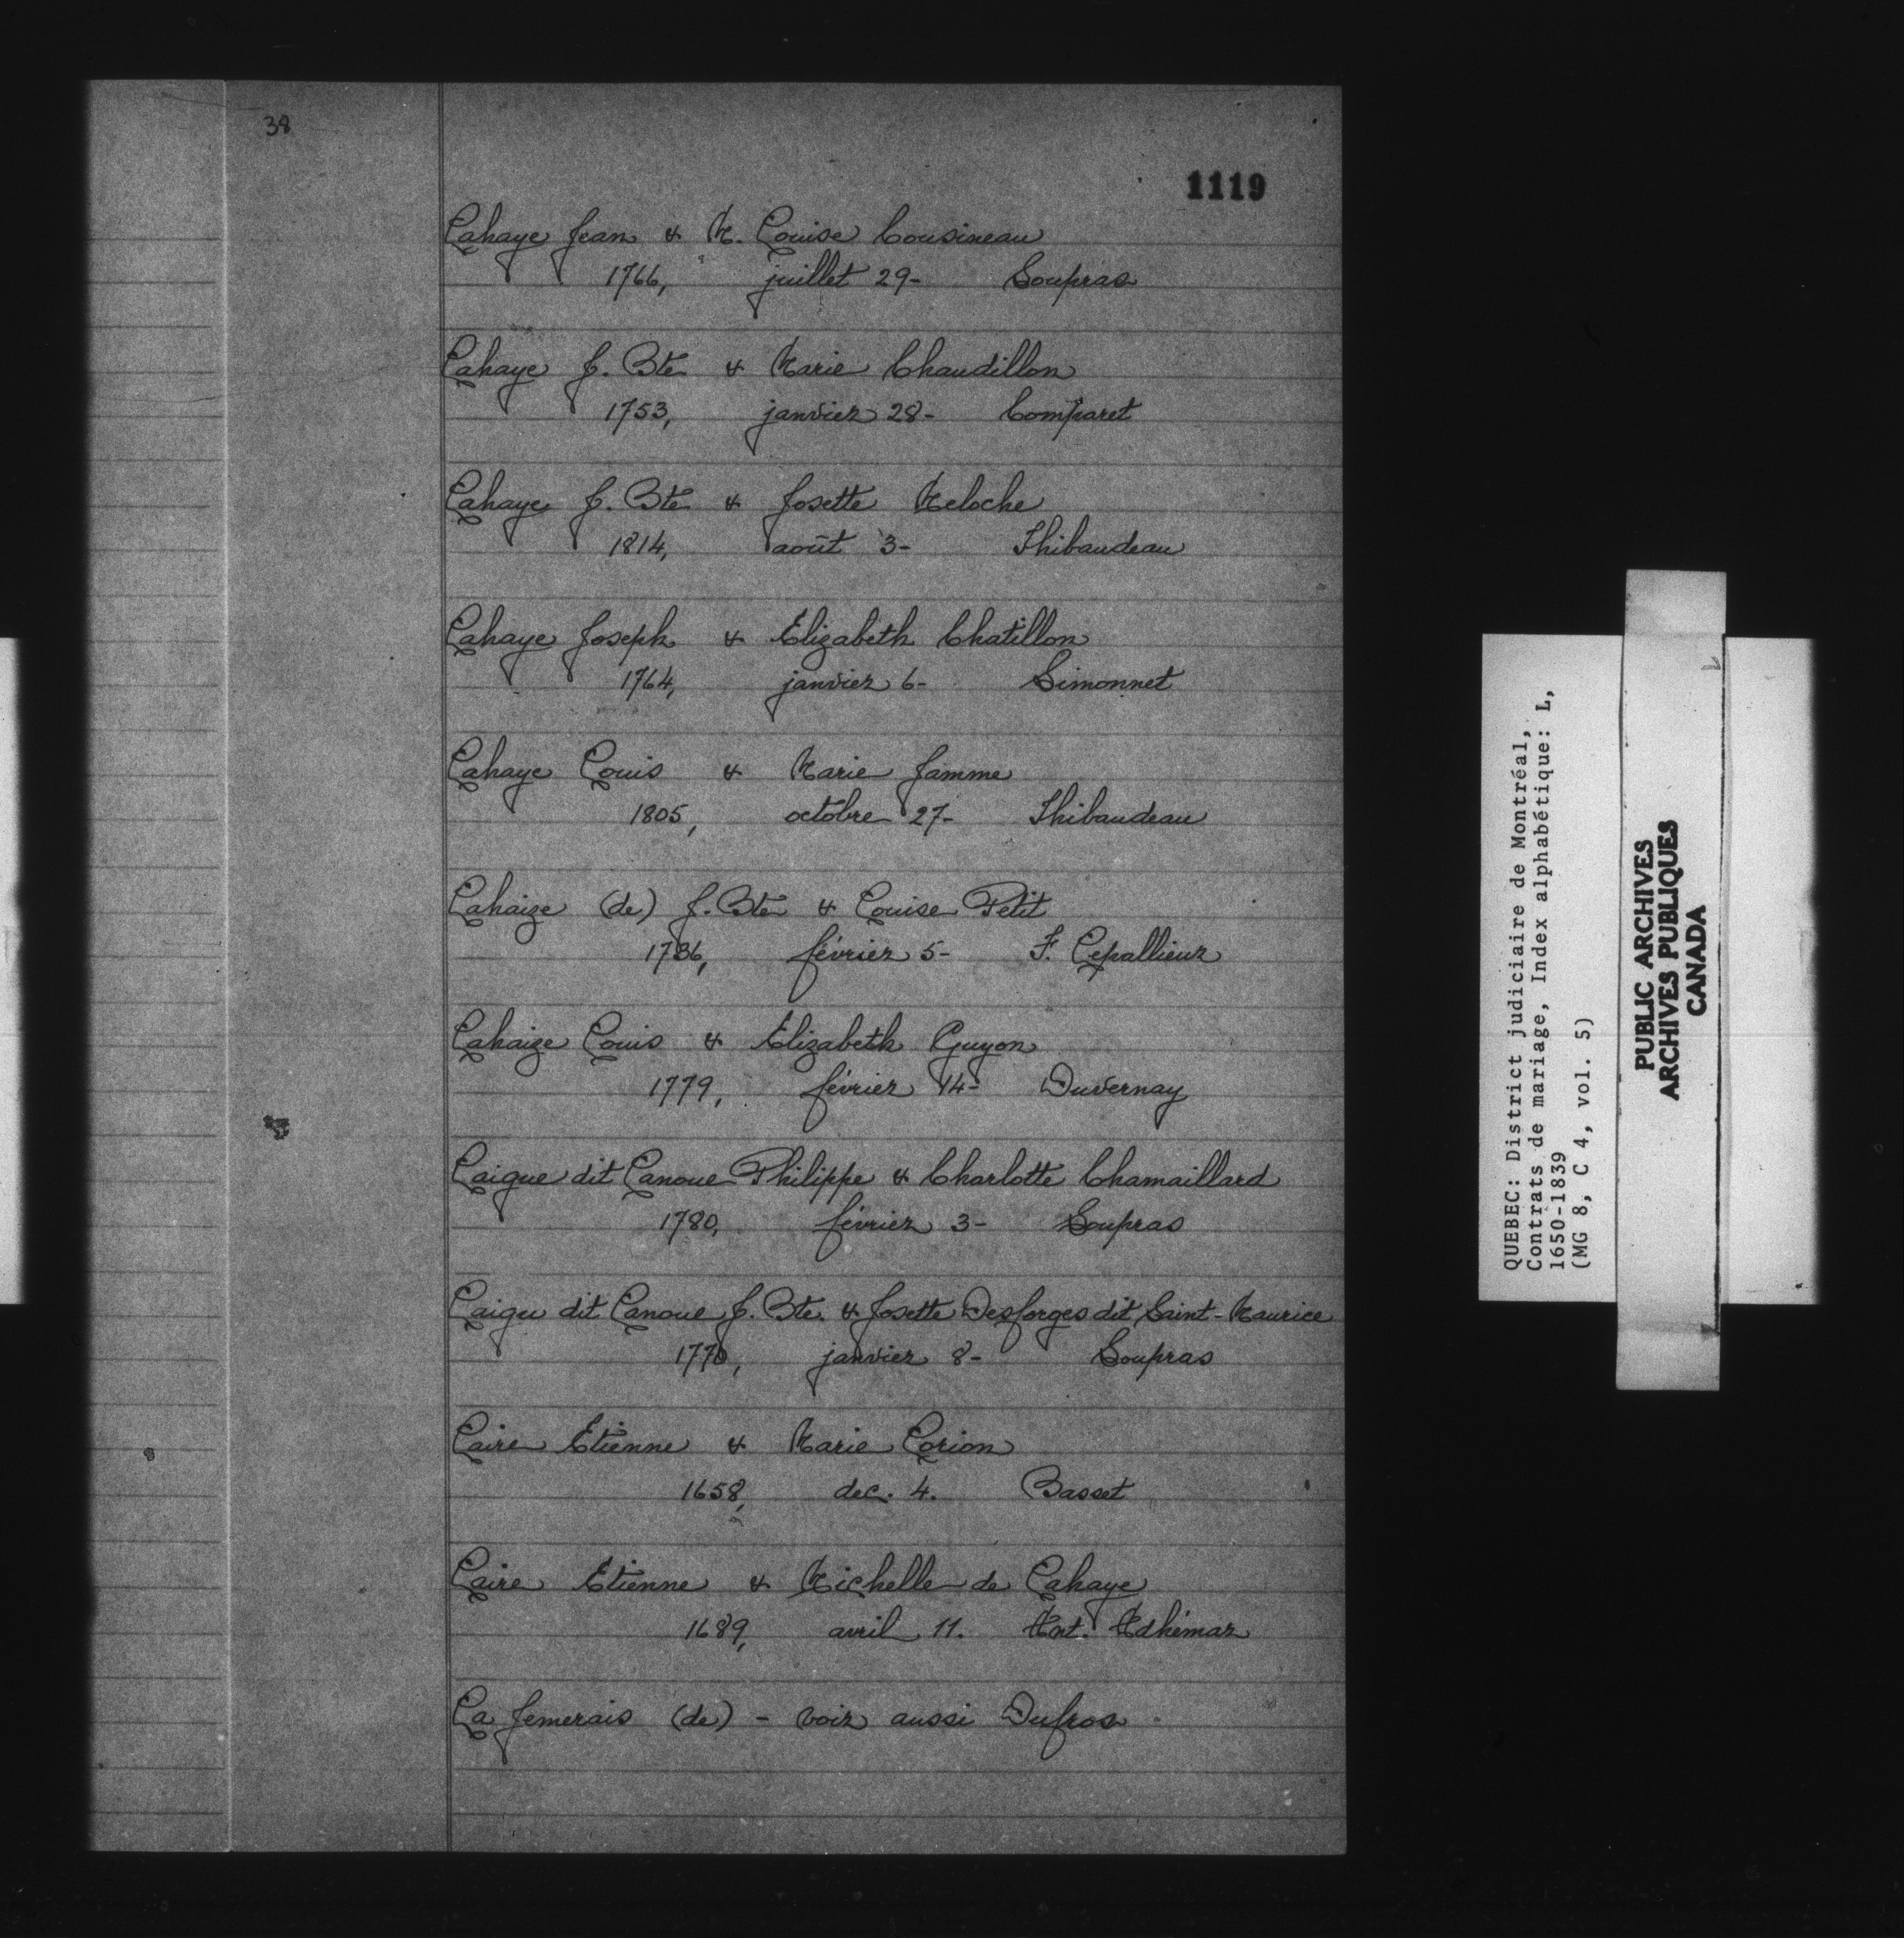 38
1119
Lahaye Jean & M. Louise Cousineau
1766, juillet 29- Soupras
Lahaye J. Bte & Marie Chaudillon
1753, janvier 28- Comparet
Lahaye J. Bte & Josette Meloche
1814, août 3- Thibaudeau
Lahaye Joseph & Elizabeth Chatillon
1764, janvier 6- Simonnet
Lahaye Louis & Marie Jamme
1805, octobre 27- Thibaudeau
Lahaize (de) J. Bte & Louise Petit
1736, février 5- F. Lepallieur
Lahaize Louis & Elizabeth Guyon
1779, février 14- Duvernay
Laigue dit Lanoue Philippe & Charlotte Chamaillard
1780, février 3- Soupras
Laigu dit Lanoue J. Bte. & Josette Desforges dit Saint-Maurice
1770, janvier 8- Soupras
Laire Etienne & Marie Lorion
1658, dec. 4. Basset
Laire Etienne & Michelle de Lahaye
1689, avril 11. Ant. Adhémar
La Jemerais (de) - voir aussi Dufros
8
QUEBEC: District judiciaire de Montréal,
Contrats de mariage, Index alphabétique: L,
1650-1839
(MG 8, C 4, vol. 5)
PUBLIC ARCHIVES
ARCHIVES PUBLIQUES
CANADA